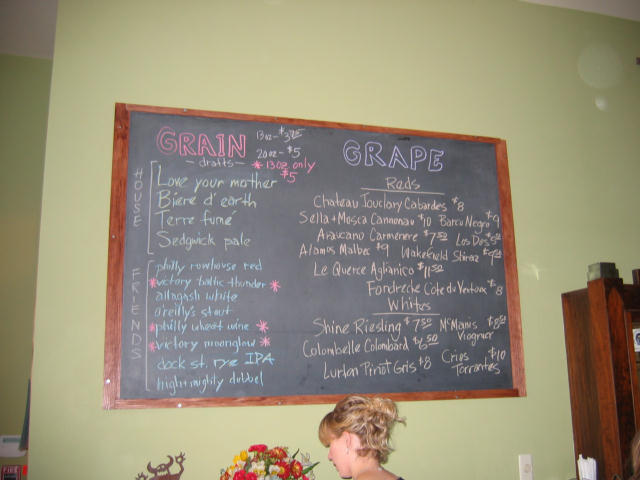 GRAIN
13oz - $3.75
- drafts -
20oz - $5
* 13oz only $5
HOUSE
Love your mother
Bière d'earth
Terre fumé
Sedgwick pale
FRIENDS
philly rowhouse red
* victory baltic thunder *
allagash white
o'reilly's stout
* philly wheat wine *
* victory moonglow *
dock st. rye IPA
high + mighty dubbel
GRAPE
Reds
Chateau Jouclary Cabardes $8
Sella + Mosca Cannonau $10 Barco Negro $9
Araucano Carmenere $7.50 Los Dos
Alamos Malbec $9 Wakefield Shiraz
Le Querce Aglianico $11.50
Fondreche Cote du Ventoux $8
Whites
Shine Riesling $7.50 McManis Viognier $8.50
Colombelle Colombard $6.50
Lurton Pinot Gris $8 Crios Torrontes $10
FIRE